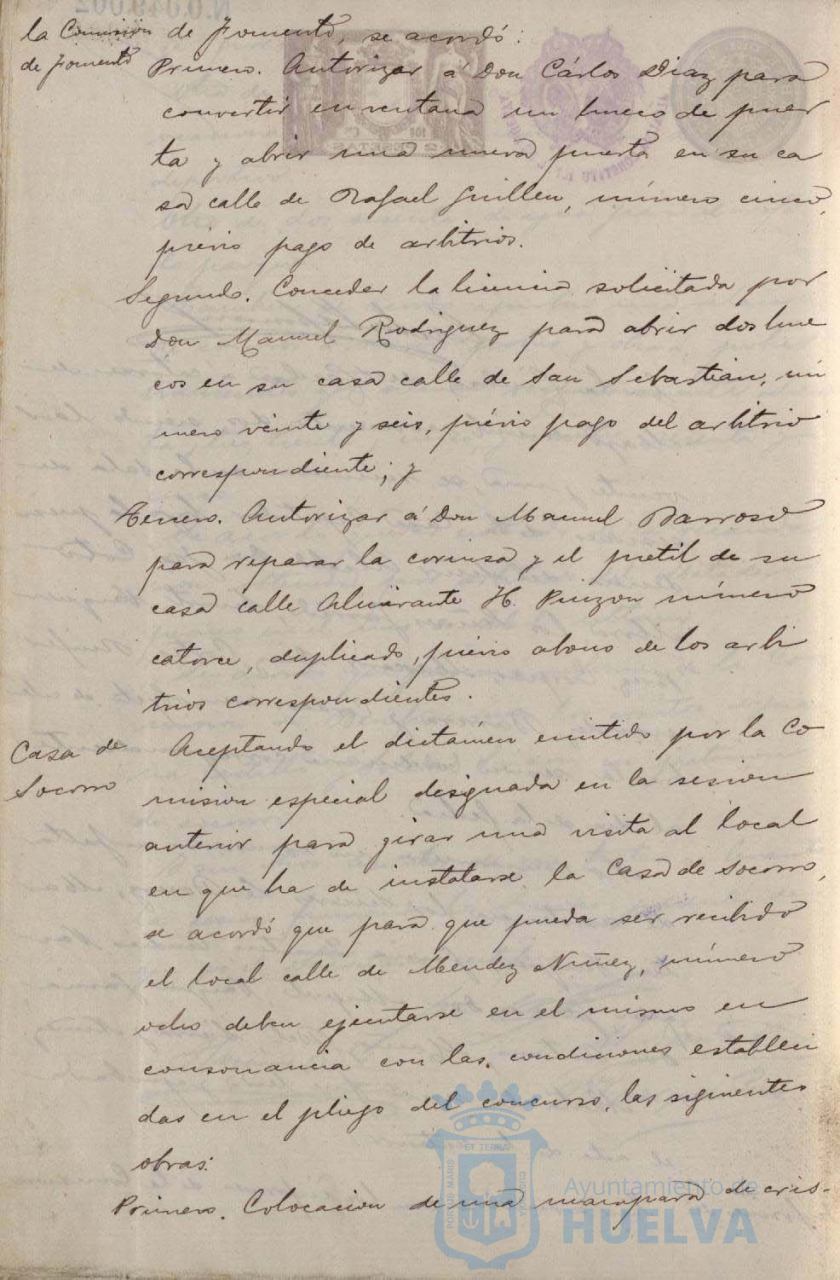 la Comision de Fomento, se acordó:
de Fomento
Primero. Autorizar á Don Cárlos Diaz para
convertir en ventana un hueco de puer
ta y abrir una nueva puerta en su ca
sa calle de Rafael Guillen, número cinco,
prévio pago de arbitrios.
Segundo. Conceder la licencia solicitada por
Don Manuel Rodriguez para abrir dos hue
cos en su casa calle de San Sebastián, nú
mero veinte y seis, prévio pago del arbitrio
correspondiente; y
Tercero. Autorizar á Don Manuel Barroso
para reparar la cornisa y el pretil de su
casa calle Almirante H. Pinzon número
catorce, duplicado, prévio abono de los arbi
trios correspondientes.
Casa de
Socorro
Aceptando el dictámen emitido por la Co
mision especial designada en la sesion
anterior para girar una visita al local
en que ha de instalarse la Casa de Socorro,
se acordó que para que pueda ser recibido
el local calle de Mendez Nuñez, número
ocho deben ejecutarse en el mismo en
consonancia con las condiciones estableci
das en el pliego del concurso, las siguientes
obras:
Primero. Colocacion de una mampara de cris-
Ayuntamiento de
HUELVA